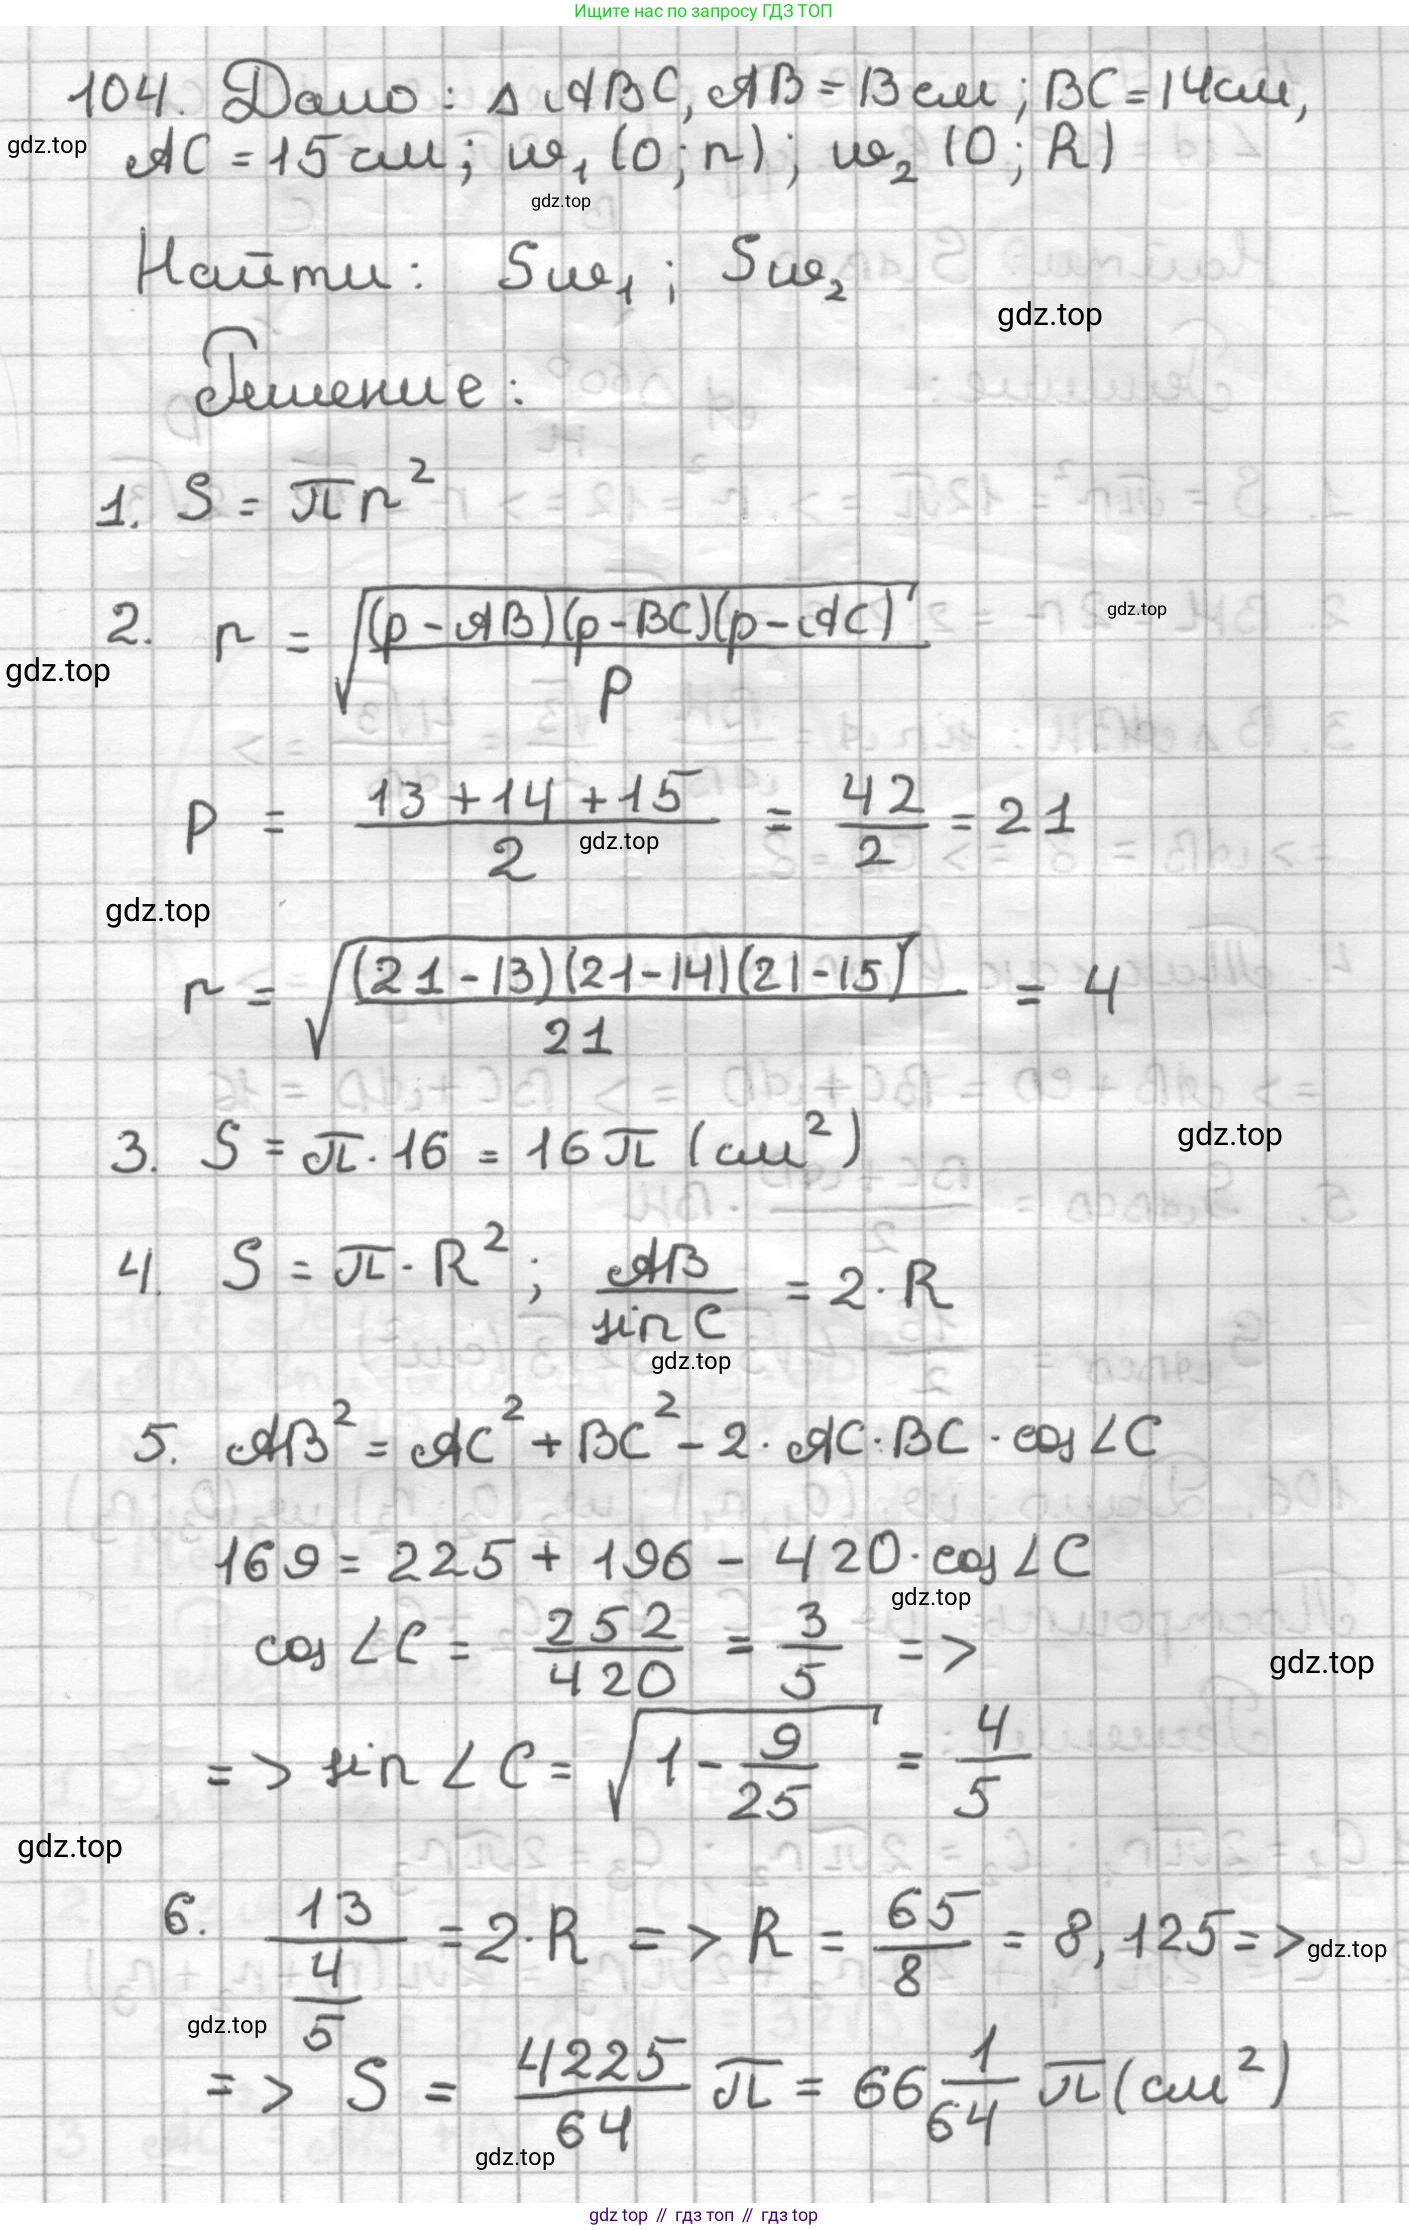 Ищите нас по запросу ГДЗ ТОП
104. Дано: △ABC, AB = 13 см; BC = 14 см,
gdz.top
AC = 15 см; ω₁ (O; r); ω₂ (O; R)
gdz.top
Найти: Sω₁; Sω₂
gdz.top
Решение:
1. S = πr²
2. r = √((p-AB)(p-BC)(p-AC)/p)
gdz.top
gdz.top
p = (13+14+15)/2 = 42/2 = 21
gdz.top
gdz.top
r = √((21-13)(21-14)(21-15)/21) = 4
3. S = π·16 = 16π (см²)
gdz.top
4. S = π·R²; AB/sin C = 2·R
gdz.top
5. AB² = AC² + BC² - 2·AC·BC·cos∠C
169 = 225 + 196 - 420·cos∠C
gdz.top
cos∠C = 252/420 = 3/5 =>
gdz.top
=> sin∠C = √(1 - 9/25) = 4/5
gdz.top
6. 13/(4/5) = 2·R => R = 65/8 = 8,125 =>
gdz.top
gdz.top
=> S = 4225/64 π = 66 1/64 π (см²)
gdz.top
gdz top // гдз топ // гдз top